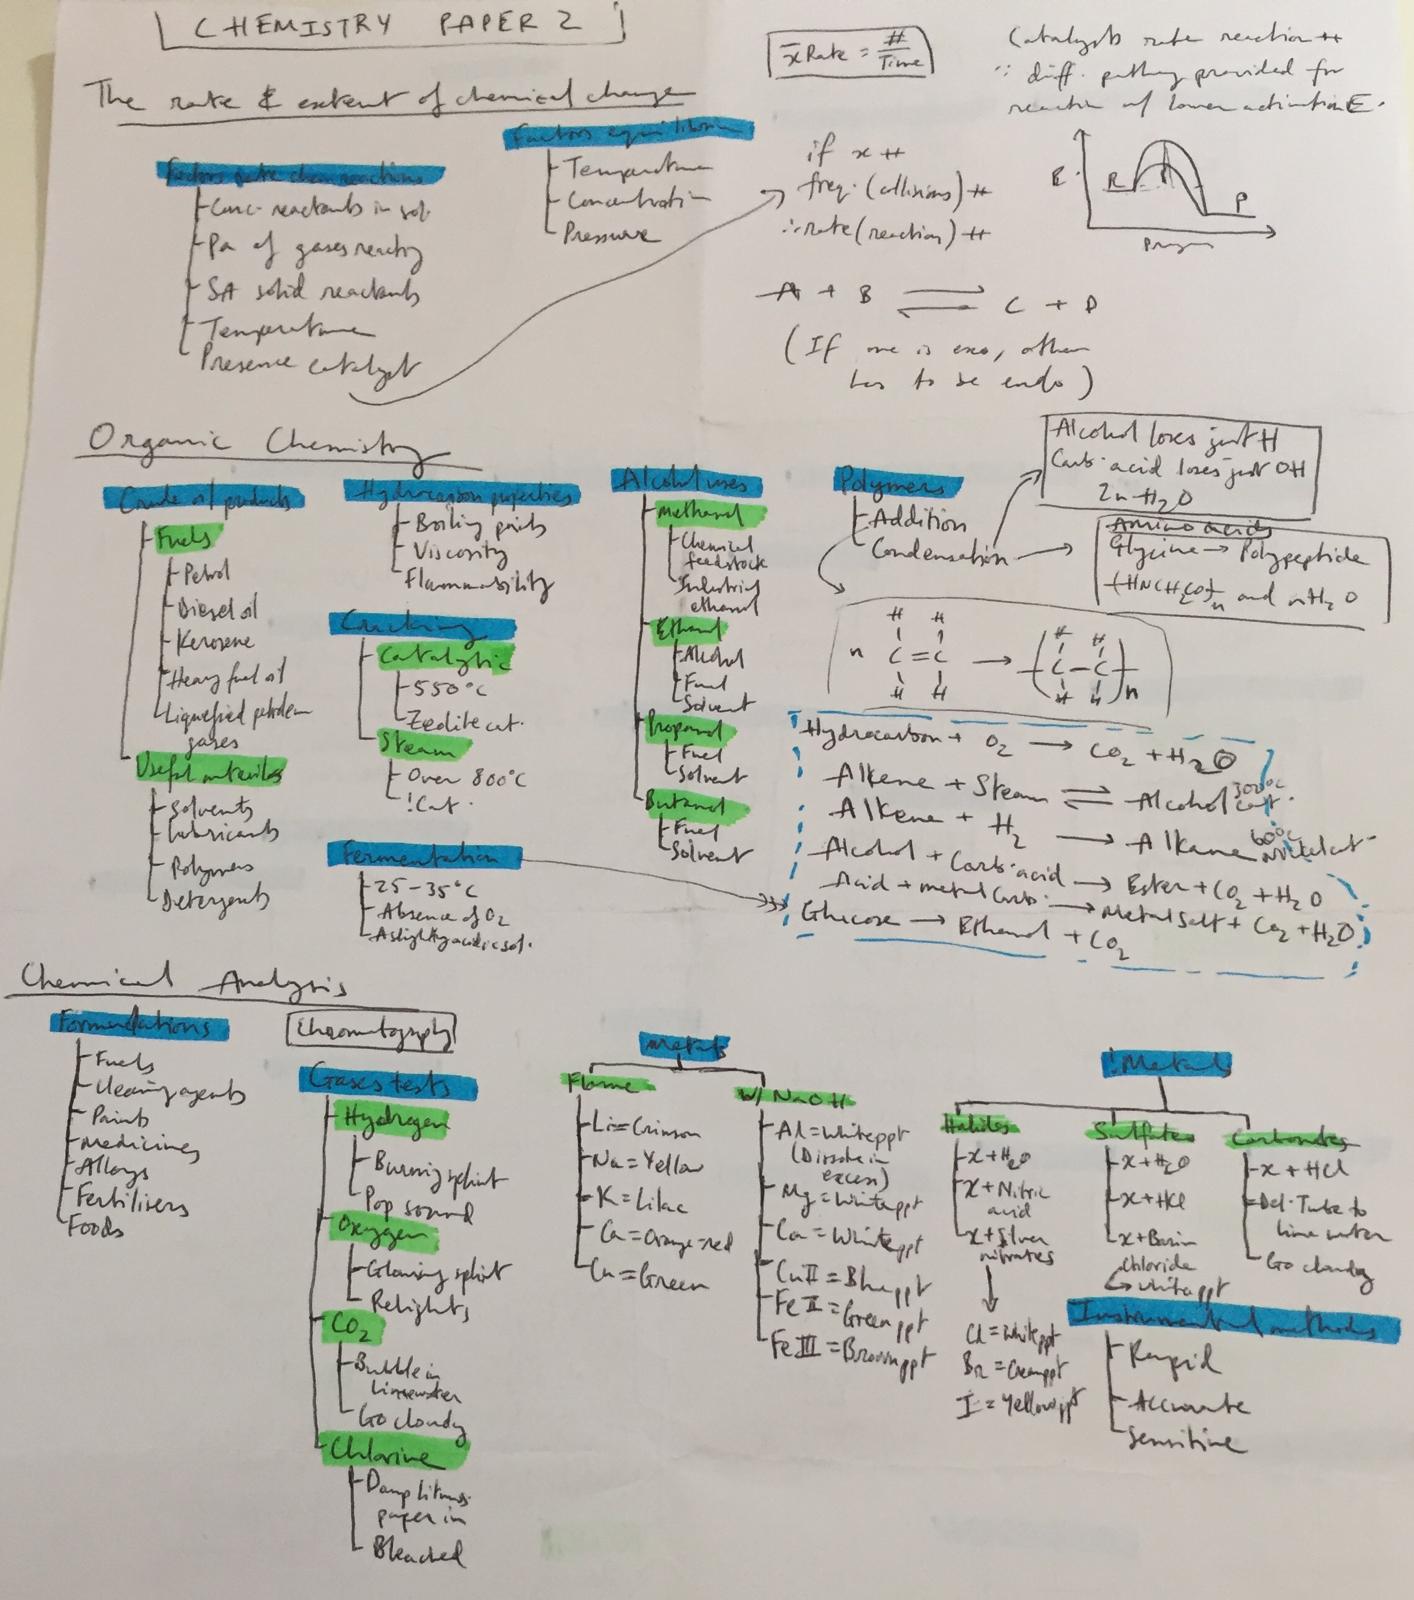 CHEMISTRY PAPER 2
The rate & extent of chemical change
Factors rate chem reactions
Conc. reactants in sol.
Pa of gases reacting
SA solid reactants
Temperature
Presence catalyst
Factors equilibrium
Temperature
Concentration
Pressure
x̄ Rate = # / Time
Catalysts rate reaction ++
∵ diff. pathway provided for
reaction w/ lower activation E.
if x ++
freq. (collisions) ++
∴ rate (reaction) ++
E
R
P
A + B ⇌ C + D
(If one is exo, other
has to be endo)
Organic Chemistry
Crude oil products
Fuels
Petrol
Diesel oil
Kerosene
Heavy fuel oil
Liquefied petroleum
gases
Useful materials
Solvents
Lubricants
Polymers
Detergents
Hydrocarbon properties
Boiling points
Viscosity
Flammability
Cracking
Catalytic
550°C
Zeolite cat.
Steam
Over 800°C
!Cat.
Fermentation
25-35°C
Absence of O2
A slightly acidic sol.
Alcohol uses
Methanol
Chemical
feedstock
Industrial
ethanol
Ethanol
Alcohol
Fuel
Solvent
Propanol
Fuel
Solvent
Butanol
Fuel
Solvent
Polymers
Addition
Condensation
Alcohol loses just H
Carb. acid loses just OH
2n H2O
Amino acids
Glycine → Polypeptide
(HNCH2CO)n and nH2O
H H
n C = C → ( C - C ) n
H H
Hydrocarbon + O2 → CO2 + H2O
Alkene + Steam ⇌ Alcohol 300°C cat.
Alkene + H2 → Alkane 60°C Nickel cat.
Alcohol + Carb. acid → Ester + CO2 + H2O
Acid + metal Carb. → Metal Salt + CO2 + H2O
Glucose → Ethanol + CO2
Chemical Analysis
Formulations
Fuels
Cleaning agents
Paints
Medicines
Alloys
Fertilisers
Foods
Chromatography
Gases tests
Hydrogen
Burning splint
Pop sound
Oxygen
Glowing splint
Relights
CO2
Bubble in
limewater
Go cloudy
Chlorine
Damp litmus
paper in
Bleached
Metals
Flame
Li = Crimson
Na = Yellow
K = Lilac
Ca = Orange-red
Cu = Green
W/ NaOH
Al = White ppt
(Dissolve in
excess)
Mg = White ppt
Ca = White ppt
Cu II = Blue ppt
Fe II = Green ppt
Fe III = Brown ppt
!Metals
Halides
x + H2O
x + Nitric
acid
x + Silver
nitrates
Cl = White ppt
Br = Cream ppt
I = Yellow ppt
Sulfates
x + H2O
x + HCl
x + Barium
Chloride
→ White ppt
Carbonates
x + HCl
Del. Tube to
lime water
Go cloudy
Instrumental methods
Rapid
Accurate
Sensitive